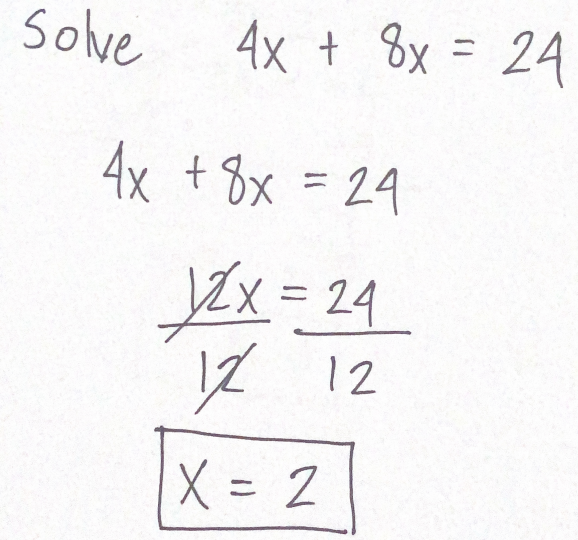 Solve 4x + 8x = 24
4x + 8x = 24
12x = 24
12 12
x = 2